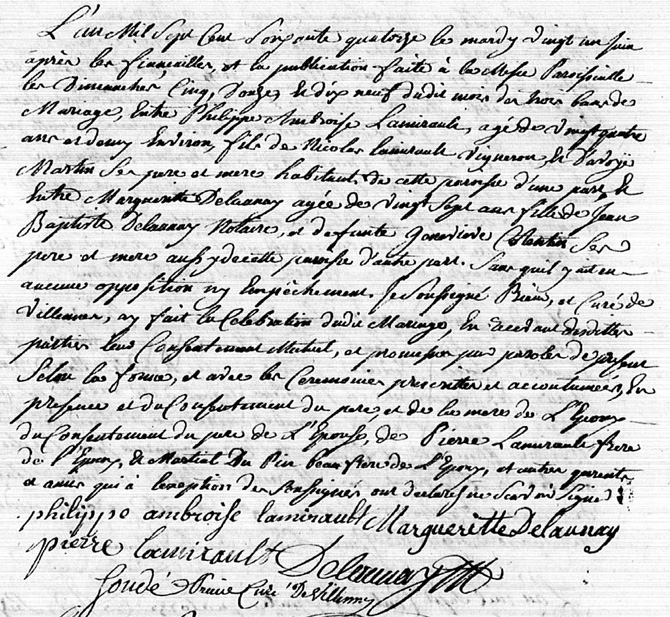 L'an Mil Sept Cent Soixante quatorze le mardy vingt un juin
après les fiancailles, et la publication faite à la Messe Paroissialle
les Dimanches Cinq, Douze, & dix neuf dudit mois de trois bans de
Mariage, Entre Philippe Ambroise Lamirault, agé de vingt quatre
ans et demy Environ, fils de Nicolas Lamirault Vigneron, & D'avoye
Martin Ses pere et mere habitant de cette paroisse d'une part, &
Entre Marguerite Delaunay agée de vingt Sept ans fille de Jean
Baptiste Delaunay Notaire, et de funte Genevieve Ses
pere et mere aussy de cette paroisse d'autre part. Sans quil y ait eu
aucune opposition ny Empêchement. Je Soussigné Prieur, et Curé de
Villeneuve, ay fait la Celebration dudit Mariage, En recevant desdittes
parties leur Consentement Mutuel, et promesse par paroles de present
Selon la forme, et avec les Ceremonies prescrites et accoutumées, En
presence et du Consentement du pere et de la mere de L'Epoux
du Consentement du pere de L'Epouse, de Pierre Lamirault frere
de l'Epoux, de Martial Du Pin beaufrere de L'Epoux, et autres parents
et amis qui à l'exception des Soussignés ont declaré ne Scavoir Signer
philippe ambroise lamirault Marguerette Delaunay
pierre lamirault Delaunay
Prieur Curé De